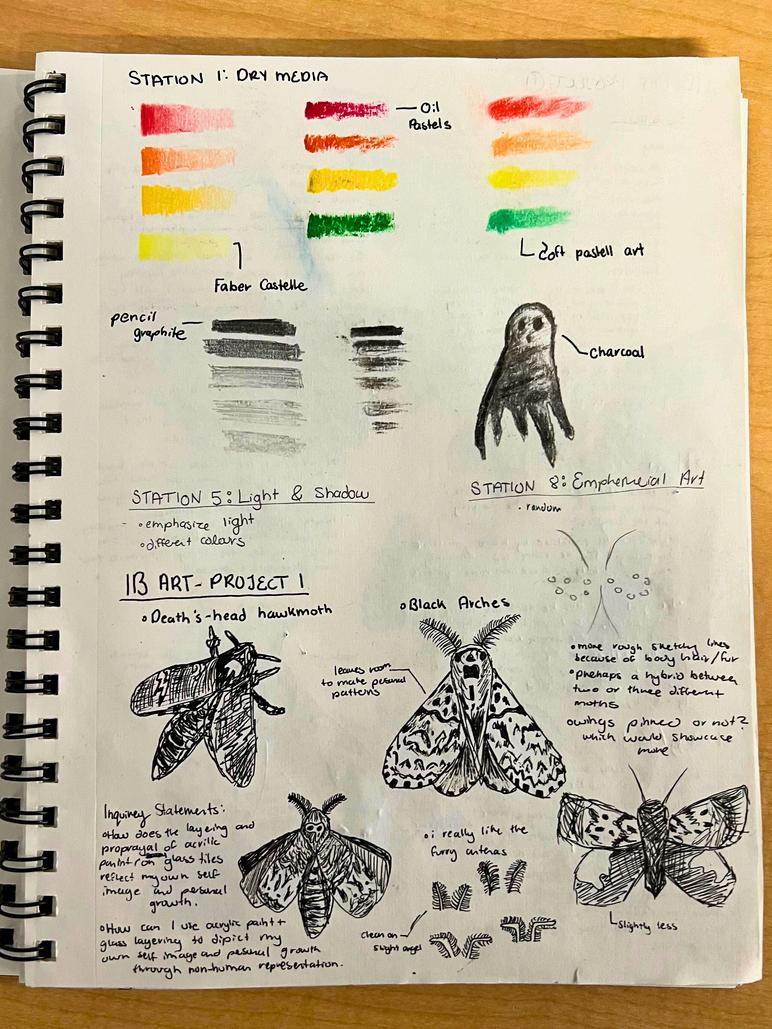 STATION 1: DRY MEDIA
Oil
Pastels
Soft pastell art
Faber Castelle
pencil
graphite
charcoal
STATION 5: Light & Shadow
• emphasize light
• different colours
STATION 8: Emphemeial Art
• random
IB ART - PROJECT 1
• Death's-head hawkmoth
• Black Arches
leaves room
to make personal
patterns
• more rough sketchy lines
because of body hair/fur
• perhaps a hybrid between
two or three different
moths
o wings pinned or not?
which would showcase
more
Inquirey Statements:
• How does the layering and
of acrilic
paint on glass tiles
reflect my own self
image and personal
growth.
• How can I use acrylic paint +
glass layering to dipict my
own self image and pesonal growth
through non-human representation.
• i really like the
furry antenas
clean on
slight angel
Slightly less